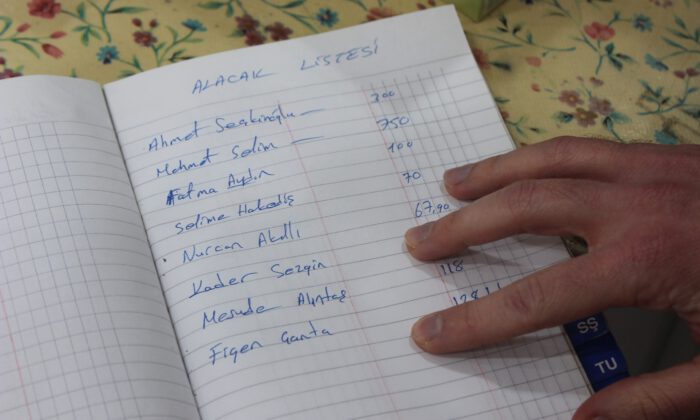 ALACAK LİSTESİ
Ahmet Seçkinoğlu — 300
Mehmet Selim — 750
Fatma Aydın 100
Selime Hakediş 70
Nurcan Akıllı 67,90
Kader Sezgin
Mesude Alıntaş 118
Figen Çanta
SŞ
TU